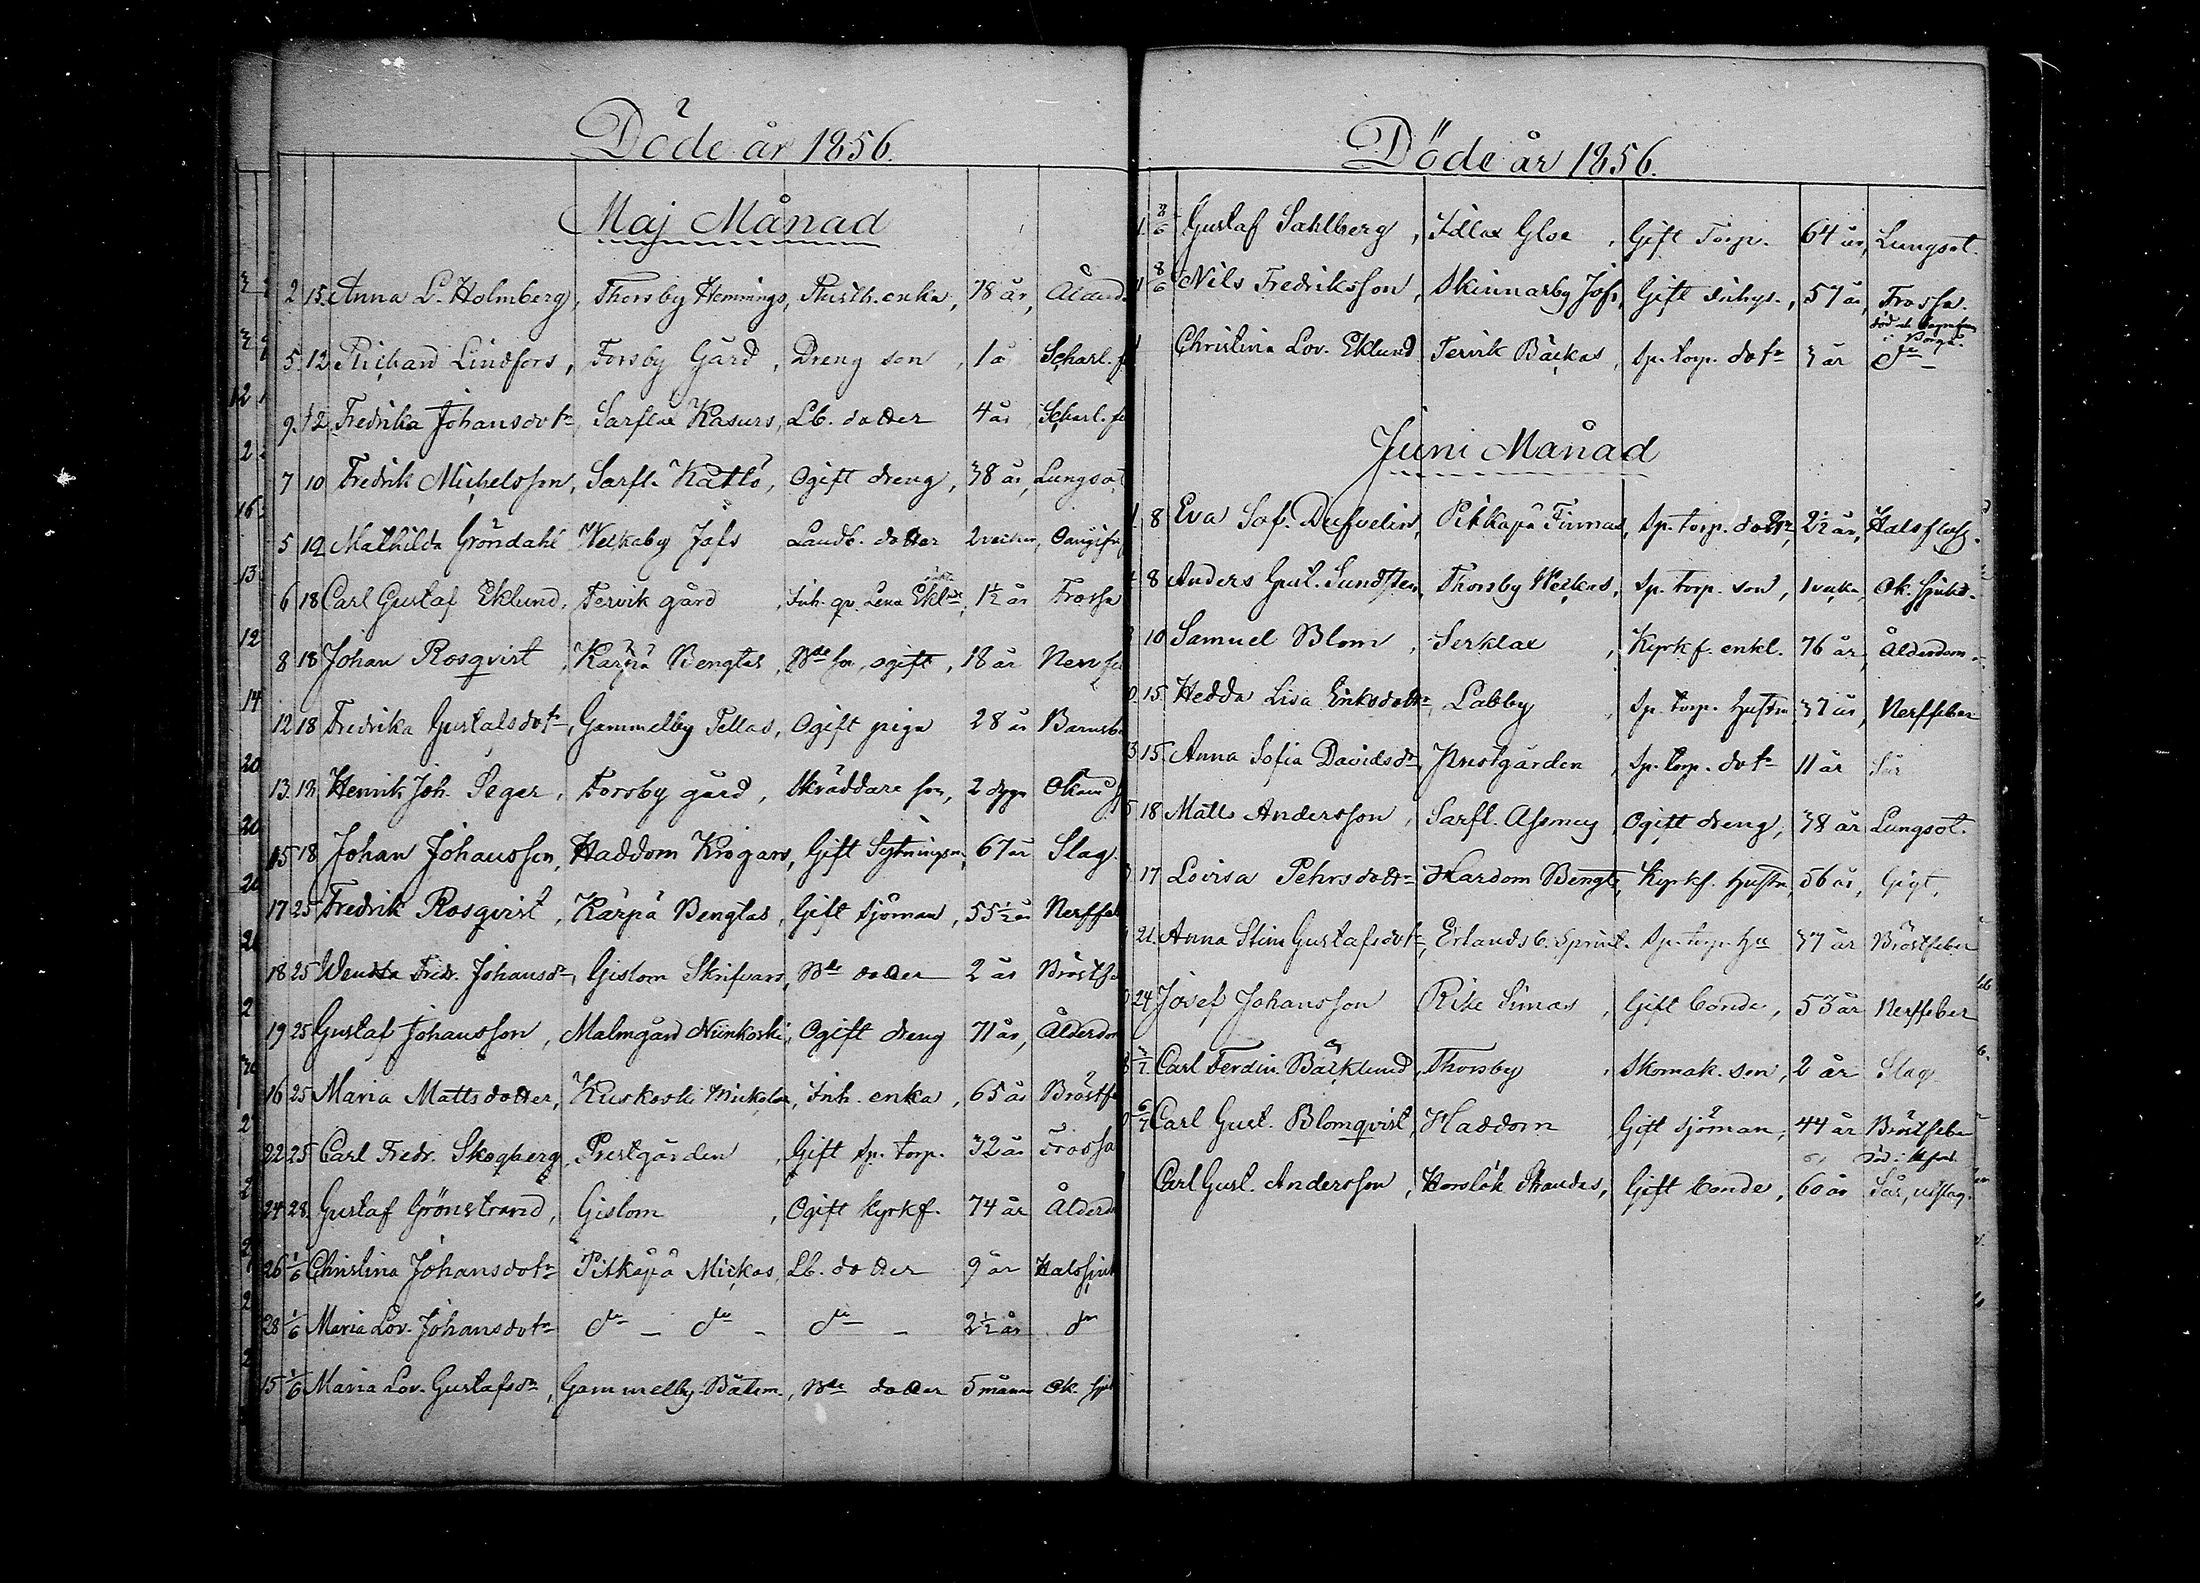 Döde år 1856.
Maj Månad
2 15 Anna L. Holmberg, Thorsby Hemmings, Rustb. enka, 78 år,
5 12 Richard Lindfors, Forsby Gård, Dreng son, 1 år Scharl.
9 12 Fredrika Johansdotr Sarflax Kasurs, Lb. dotter 4 år Scharl.
7 10 Fredrik Michelsson, Sarfl. Kattö, Ogift dreng, 38 år, Lungsot
5 12 Mathilda Gröndahl Weckaby Jofs Landb. dotter 2 veckor,
6 18 Carl Gustaf Eklund, Tervik gård Inh. qv. Lena 1½ år Frossa
8 18 Johan Rosqvist, Kärpä Bengtas, Bde son, ogift, 18 år
12 18 Fredrika Gustafsdotr, Gammelby Tellas, Ogift piga 28 år
13 18 Henrik Joh. Seger, Forsby gård, Skräddare son, 2 dygn
15 18 Johan Johansson, Haddom Krogars, Gift Sytningsm. 67 år Slag.
17 25 Fredrik Rosqvist, Kärpä Bengtas, Gift sjöman, 55½ år
18 25 Wendla Fredr. Johansdr, Gislom Skrifvars, Bde dotter 2 år
19 25 Gustaf Johansson, Malmgård Niinkoski, Ogift dreng 71 år,
16 25 Maria Mattsdotter, Kuskoski Mickola, Inh. enka, 65 år
22 25 Carl Fredr. Skogberg, Prestgården, Gift sp. torp. 32 år Frossa
24 28 Gustaf Grönstrand, Gislom, Ogift kyrkf. 74 år
26 1/6 Christina Johansdotr Pitkäpä Mickas, Lb. dotter 9 år
28 1/6 Maria Lov. Johansdotr do – do – do – 2½ år do
15 1/6 Maria Lov. Gustafsdr, Gammelby Båtsm., Bde dotter 5 månr
Döde år 1856.
8/6 Gustaf Sahlberg, Idlax Gloe, Gift Torp. 64 år, Lungsot.
8/6 Nils Fredriksson, Skinnarby Jofs, Gift Inhys., 57 år, Frossa.
Christina Lov. Eklund Tervik Bäckas, Sp. torp. dotr 3 år do –
Juni Månad
8 Eva Sof. Dufvelin, Pitkäpä Finnas, Sp. torp. dottr, 2½ år, Halsfluss.
8 Anders Gust. Sundsten, Thorsby Weckas, Sp. torp. son, 1 vecka, Ok. sjukd.
10 Samuel Blom, Serklax, Kyrkf. enkl. 76 år, Ålderdom
15 Hedda Lisa Eriksdottr, Labby, Sp. torp. hustru 37 år, Nerffeber
15 Anna Sofia Davidsdr, Prestgården, Sp. torp. dotr 11 år Sår
18 Matts Andersson, Sarfl. Assmus, Ogift dreng, 38 år Lungsot.
17 Lovisa Pehrsdottr Hardom Bengts, Kyrkf. hustru, 56 år, Gigt,
21 Anna Stina Gustafsdotr, Erlandsb. Sp. torp. hu 37 år Bröstfeber
24 Josef Johansson Rike Simas, Gift bonde, 53 år Nerffeber
Carl Ferdin. Bäcklund, Thorsby, Skomak. son, 2 år Slag
6/7 Carl Gust. Blomqvist, Haddom, Gift sjöman, 44 år Bröstfeber
Carl Gust. Andersson, Horslök Strandas, Gift bonde, 60 år Sår, utslag.